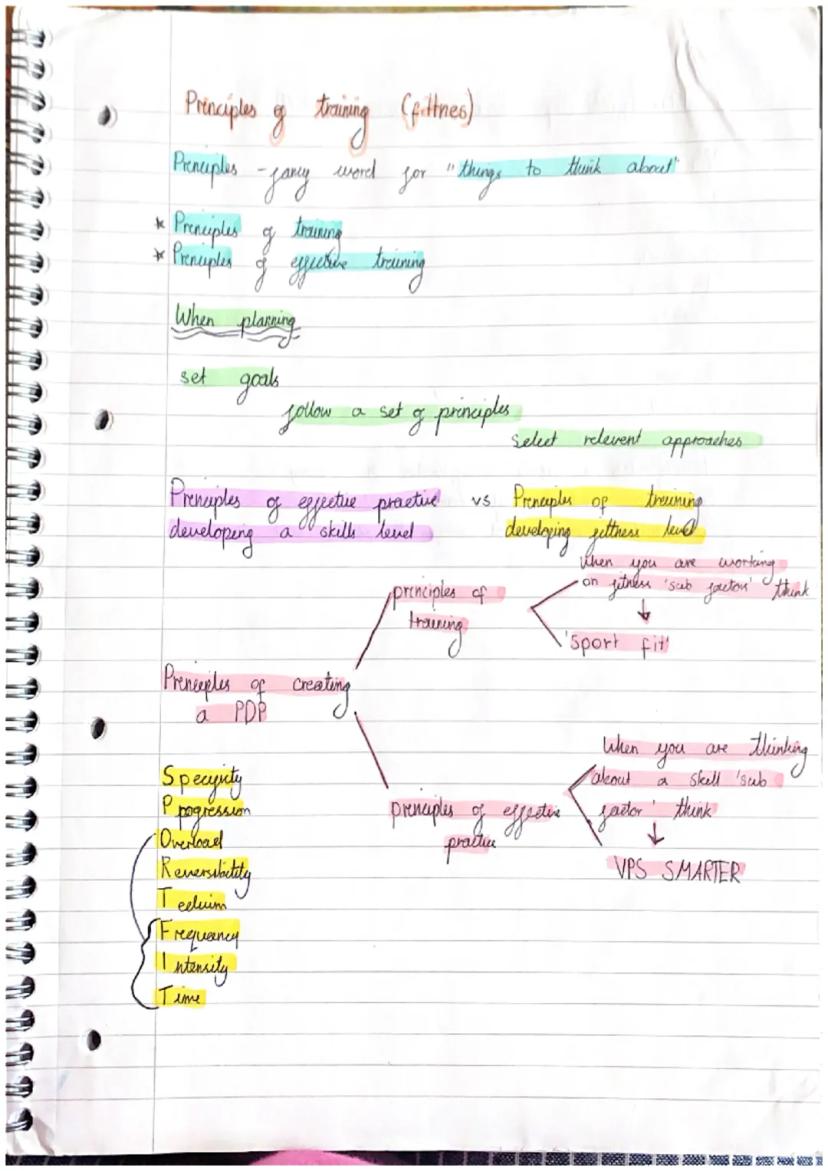 Principles of training (fittnes)
Principles - fancy word for "things to think about"
* Principles of training
* Principles of effective training
When planning
set goals
follow a set of principles
select relevent approaches
Principles of effective practice vs Principles of training
developing a skills level developing fittness level
when you are working
on fitness 'sub factor' think
principles of
training
'Sport fit'
Principles of creating
a PDP
When you are thinking
about a skill 'sub
factor' think
principles of effective
practice
VPS SMARTER
Specificity
Progression
Overload
Reversibility
Tedium
Frequancy
Intensity
Time